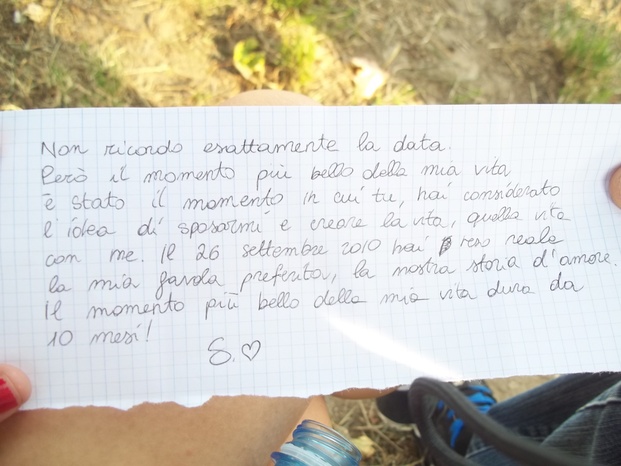 Non ricordo esattamente la data.
Però il momento più bello della mia vita
è stato il momento in cui tu, hai considerato
l'idea di sposarmi e creare la vita, quella vita
con me. Il 26 settembre 2010 hai reso reale
la mia favola preferita, la nostra storia d'amore.
Il momento più bello della mia vita dura da
10 mesi!
S.♡